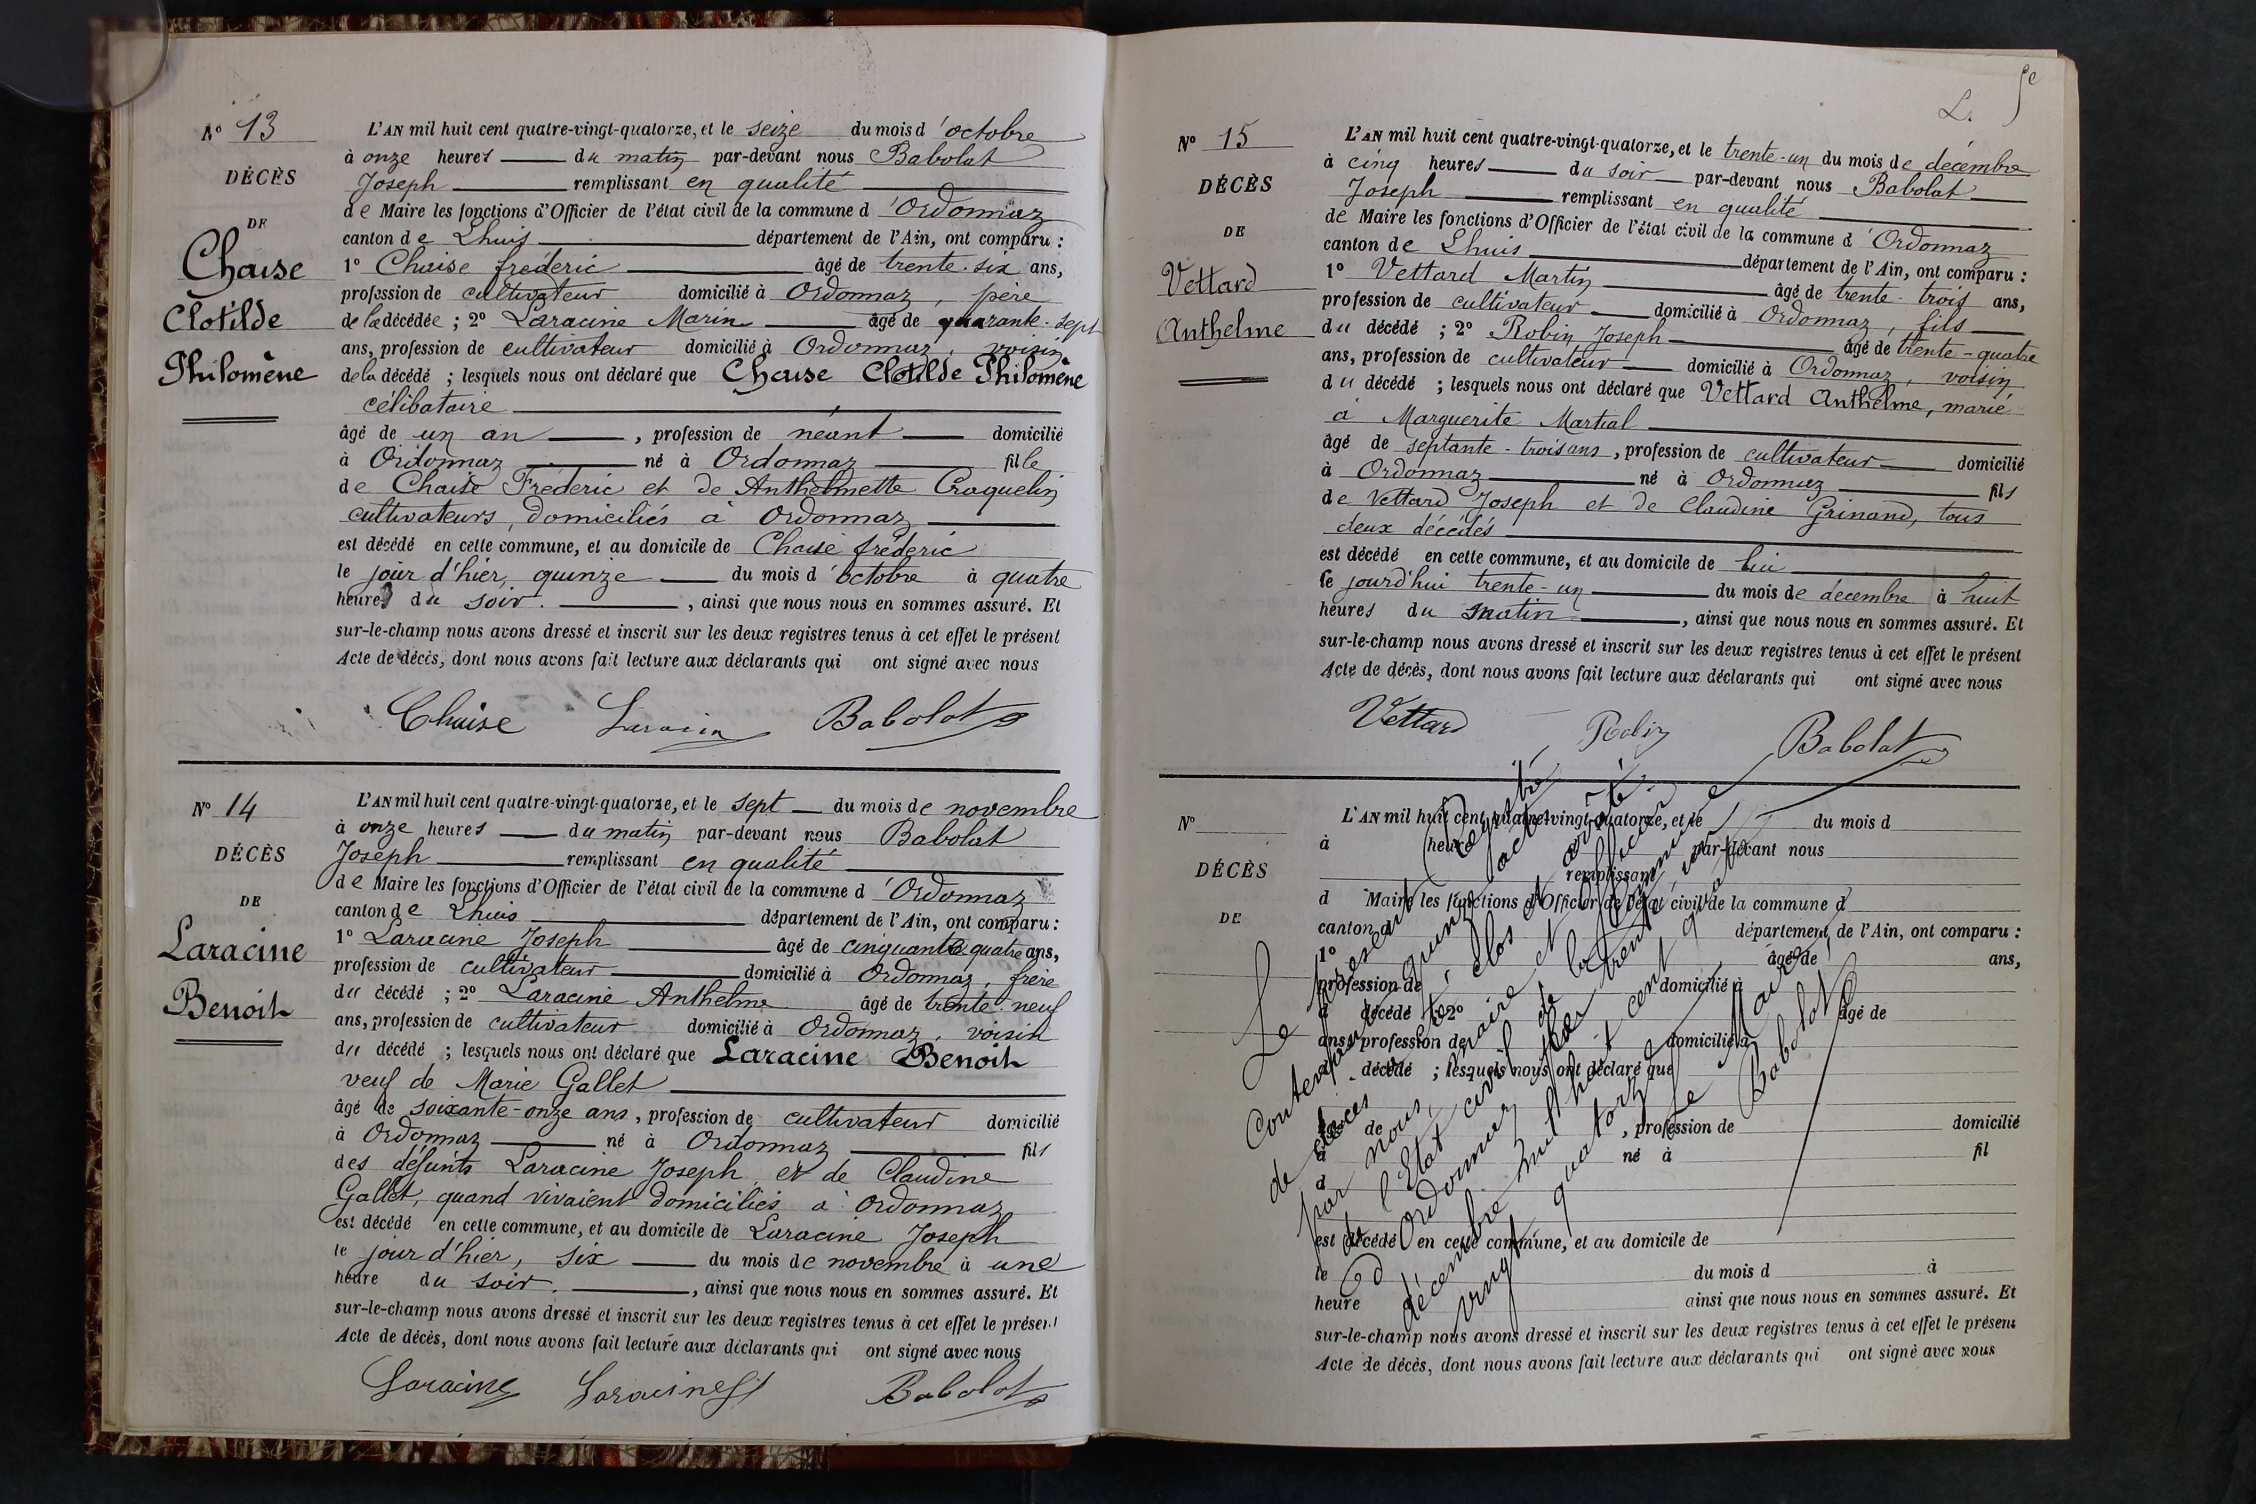 Nº 13
DÉCÈS
DE
Chaise
Clotilde
Philomène
L'AN mil huit cent quatre-vingt-quatorze, et le seize du mois d'octobre
à onze heures du matin par-devant nous Babolat
Joseph remplissant en qualité
de Maire les fonctions d'Officier de l'état civil de la commune d'Ordonnaz
canton de Lhuis département de l'Ain, ont comparu :
1º Chaise frédéric âgé de trente-six ans,
profession de cultivateur domicilié à Ordonnaz, père
de la décédée ; 2º Laracine Marin âgé de quarante-sept
ans, profession de cultivateur domicilié à Ordonnaz, voisin
de la décédé ; lesquels nous ont déclaré que Chaise Clotilde Philomène
célibataire
âgé de un an, profession de néant domicilié
à Ordonnaz né à Ordonnaz fille
de Chaise Frédéric et de Anthelmette Craquelin
cultivateurs, domiciliés à Ordonnaz
est décédé en cette commune, et au domicile de Chaise frédéric
le jour d'hier, quinze du mois d'octobre à quatre
heures du soir., ainsi que nous nous en sommes assuré. Et
sur-le-champ nous avons dressé et inscrit sur les deux registres tenus à cet effet le présent
Acte de décès, dont nous avons fait lecture aux déclarants qui ont signé avec nous
Chaise Laracin Babolat
Nº 14
DÉCÈS
DE
Laracine
Benoit
L'AN mil huit cent quatre-vingt-quatorze, et le sept du mois de novembre
à onze heures du matin par-devant nous Babolat
Joseph remplissant en qualité
de Maire les fonctions d'Officier de l'état civil de la commune d'Ordonnaz
canton de Lhuis département de l'Ain, ont comparu :
1º Laracine Joseph âgé de cinquante quatre ans,
profession de cultivateur domicilié à Ordonnaz, frère
du décédé ; 2º Laracine Anthelme âgé de trente-neuf
ans, profession de cultivateur domicilié à Ordonnaz, voisin
du décédé ; lesquels nous ont déclaré que Laracine Benoit
veuf de Marie Gallet
âgé de soixante-onze ans, profession de cultivateur domicilié
à Ordonnaz né à Ordonnaz fils
des défunts Laracine Joseph et de Claudine
Gallet, quand vivaient domiciliés à Ordonnaz
est décédé en cette commune, et au domicile de Laracine Joseph
le jour d'hier, six du mois de novembre à une
heure du soir., ainsi que nous nous en sommes assuré. Et
sur-le-champ nous avons dressé et inscrit sur les deux registres tenus à cet effet le présent
Acte de décès, dont nous avons fait lecture aux déclarants qui ont signé avec nous
Laracine Laracine Babolat
Nº 15
DÉCÈS
DE
Vettard
Anthelme
L'AN mil huit cent quatre-vingt-quatorze, et le trente-un du mois de décembre
à cinq heures du soir par-devant nous Babolat
Joseph remplissant en qualité
de Maire les fonctions d'Officier de l'état civil de la commune d'Ordonnaz
canton de Lhuis département de l'Ain, ont comparu :
1º Vettard Martin âgé de trente-trois ans,
profession de cultivateur domicilié à Ordonnaz, fils
du décédé ; 2º Robin Joseph âgé de trente-quatre
ans, profession de cultivateur domicilié à Ordonnaz, voisin
du décédé ; lesquels nous ont déclaré que Vettard Anthelme, marié
à Marguerite Martial
âgé de septante-trois ans, profession de cultivateur domicilié
à Ordonnaz né à Ordonnaz fils
de Vettard Joseph et de Claudine Grinand, tous
deux décédés
est décédé en cette commune, et au domicile de lui
le jourd'hui trente-un du mois de décembre à huit
heures du matin, ainsi que nous nous en sommes assuré. Et
sur-le-champ nous avons dressé et inscrit sur les deux registres tenus à cet effet le présent
Acte de décès, dont nous avons fait lecture aux déclarants qui ont signé avec nous
Vettard Robin Babolat
Nº
DÉCÈS
DE
L'AN mil huit cent quatre-vingt-quatorze, et le du mois d
à heure par-devant nous
remplissant
d Maire les fonctions d'Officier de l'état civil de la commune d
canton d département de l'Ain, ont comparu :
1º âgé de ans,
profession de domicilié à
d décédé ; 2º âgé de
ans, profession de domicilié à
d décédé ; lesquels nous ont déclaré que
âgé de, profession de domicilié
à né à fil
d
est décédé en cette commune, et au domicile de
le du mois d à
heure ainsi que nous nous en sommes assuré. Et
sur-le-champ nous avons dressé et inscrit sur les deux registres tenus à cet effet le présent
Acte de décès, dont nous avons fait lecture aux déclarants qui ont signé avec nous
Le présent Registre
contenant quinze actes
de décès a été clos et arrêté
par nous, maire et officier
de l'Etat civil de la Commune
d'Ordonnaz le trente un
décembre mil huit cent quatre
vingt quatorze
Le Maire,
Babolat